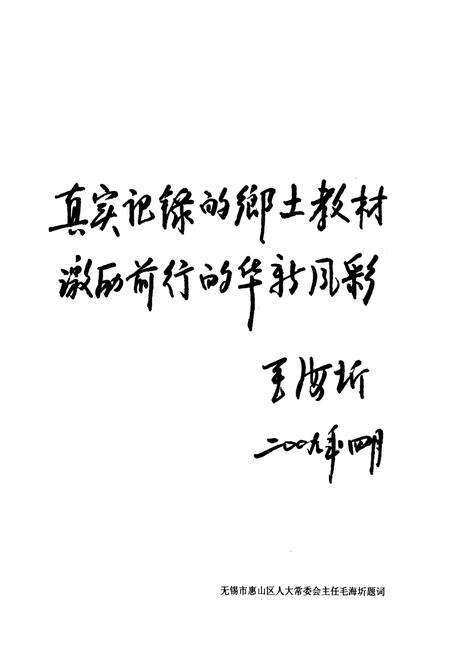 真实记录的鄉土教材
激励前行的华新风彩
毛海圻
二〇〇九年四月
无锡市惠山区人大常委会主任毛海圻题词